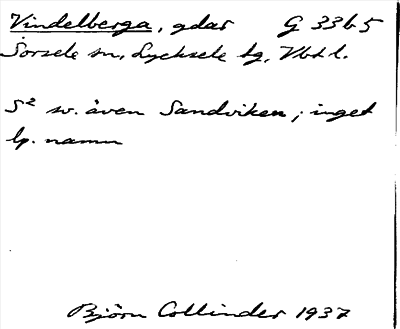 Vindelberga, gdar G 33 b 5
Sorsele sn, Lycksele tg, Vbtl.
S² sv. även Sandviken; inget
lp. namn
Björn Collinder 1937